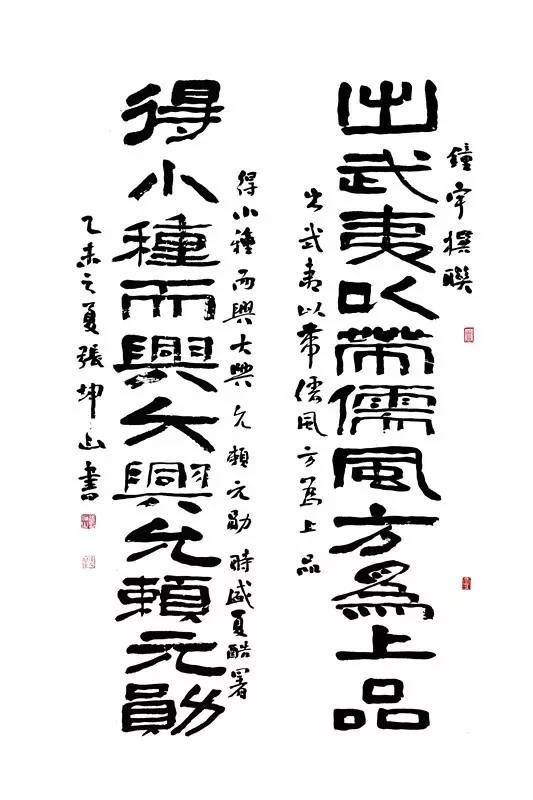 鐘宇撰聯
出武夷以帶儒風方爲上品
出武夷以帶儒風方爲上品
得小種而興大興允賴元勛時盛夏酷署
得小種而興大興允賴元勛
乙未之夏張坤山書